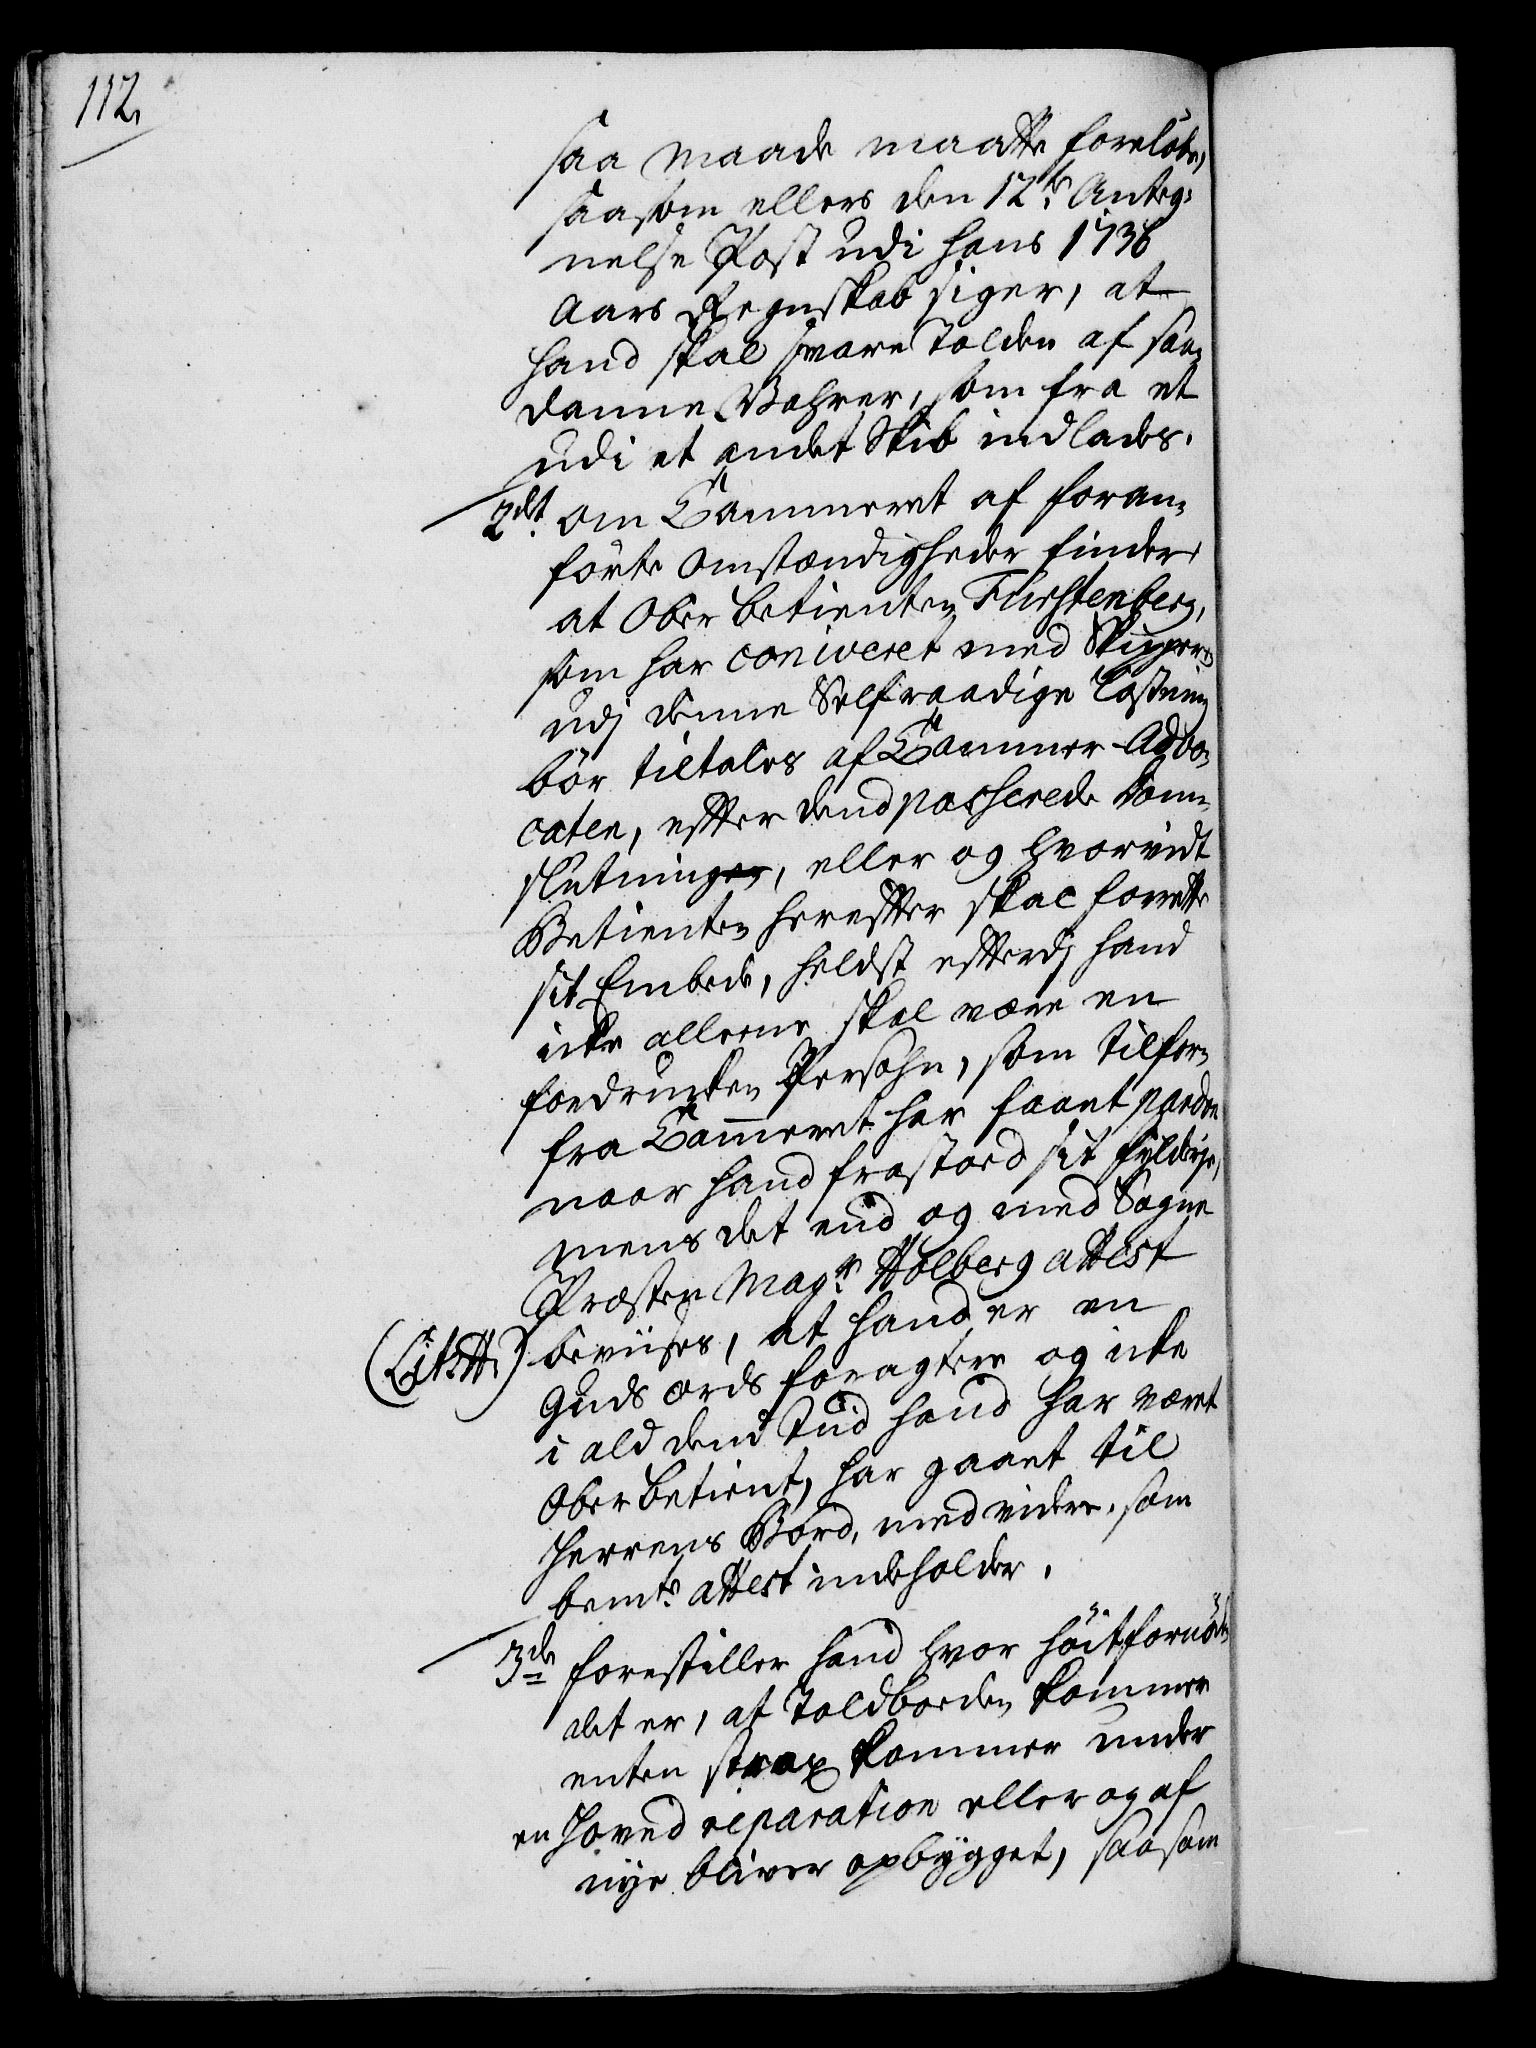 112.
saa maade maatte foreløbe,
saasom ellers den 12te Anteg=
nelse Post udi hans 1736
Aars Regnskab siger, at
hand skal svare Tolden af saa=
danne Wahrer, som fra et
udi et andet Skib indlades.
2det om Cammeret af foran=
førte Omstændigheder finder
at Ober betienten Fürstenberg,
som har coniveret med Skipperen
udj denne Selfraadige Losning
bör tiltales af Cammer-Advo=
caten, effter dend passerede Som=
slutning, eller og hvorvidt
Betienten hereffter skal forrette
sit Embede, heldst efterdj hand
icke alleene skal være en
fordrucken Persohn, som tilforn
fra Cammeret har faaet pardon
naar hand frastoed sit fylderie,
mens det end og med Sogne
Præsten Magr Holbergs attest
(Lit: H.) beviises, at hand er en
Guds ords foragtere og icke
i ald dend Tiid hand har været
Ober betient, har gaaet til
Herrens Bord, med videre, som
bemte attest indeholder.
3de forestiller hand hvor höitfornöden
det er, at Toldboeden kommer
enten strax kommer under
en Hoved reparation eller og af
nye bliver opbygget, saasom